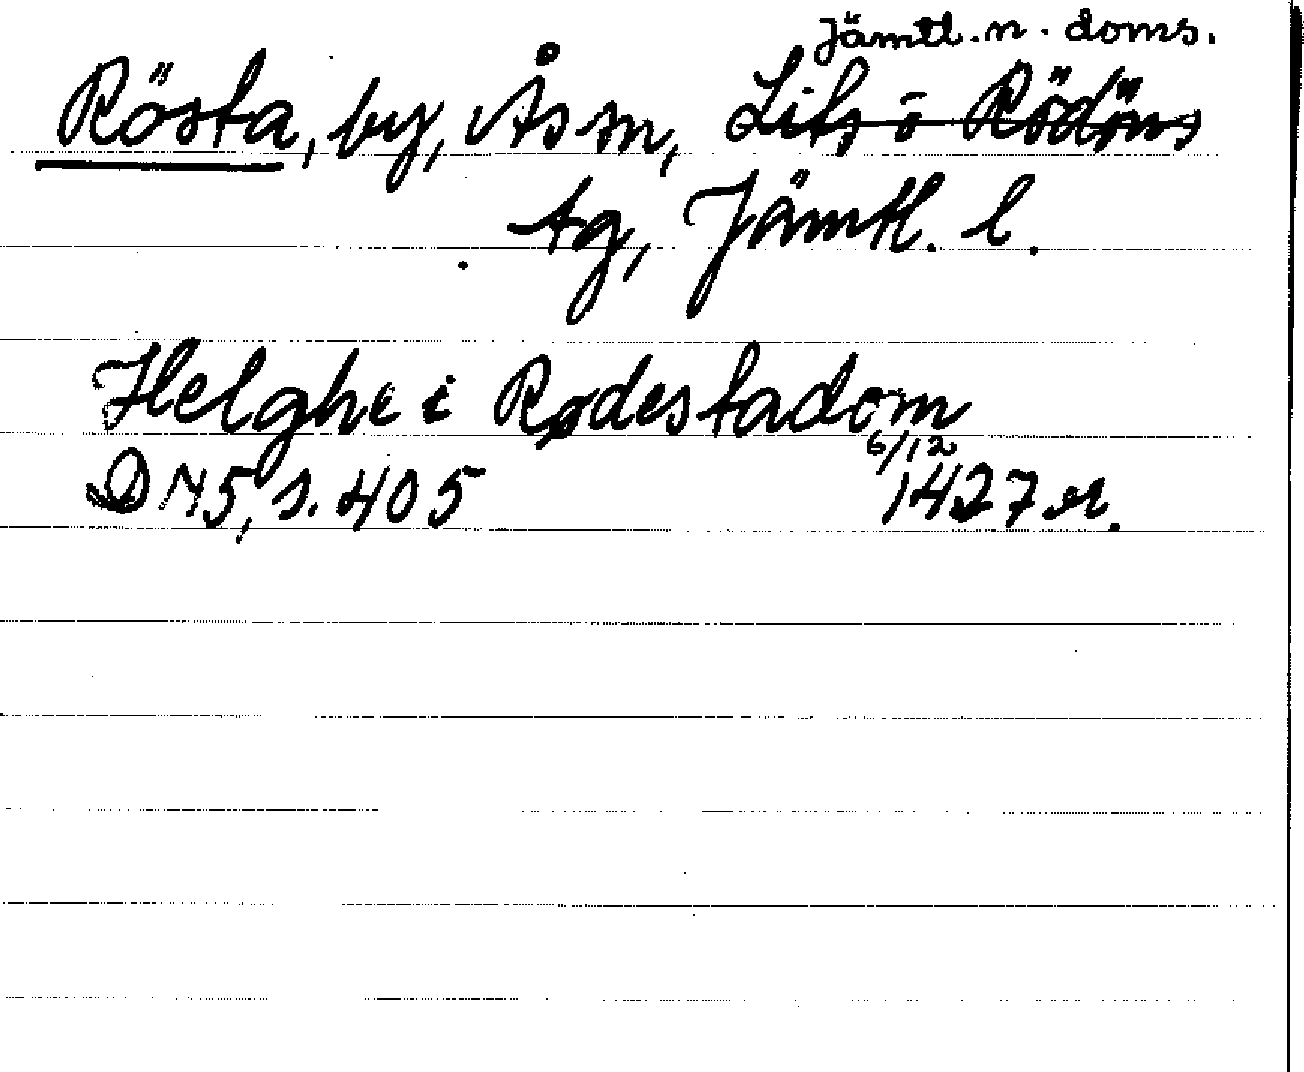 Jämtl. n. doms.
Rösta, by, Ås sn, Lits o Rödöns
tg, Jämtl. l.
Helghe i Rødestadom
6/12
DN5, s. 405 1427 or.